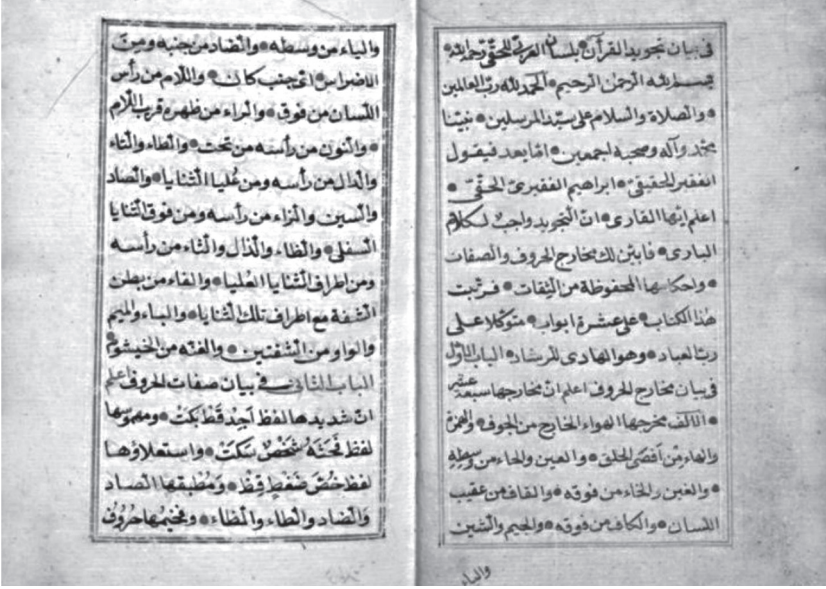 في بيان تجويد القرآن بلسان العربي للحقي رحمه الله
بسم الله الرحمن الرحيم الحمد لله رب العالمين
والصلاة والسلام على سيد المرسلين نبينا
محمد وآله وصحبه اجمعين امّا بعد فيقول
الفقير الحقيقي ابراهيم الفقيري الحقي
اعلم ايّها القارى انّ التجويد واجب لكلام
البارى فابيّن لك مخارج الحروف والصفات
واحكامها المحفوظة من الثقات فرتبت
هذا الكتاب على عشرة ابواب متوكلا على
ربّ العباد وهو الهادى للرشاد الباب الاوّل
فى بيان مخارج الحروف اعلم انّ مخارجها سبعة عشر
الالف مخرجها الهواء الخارج من الجوف والهمزة
والهاء من اقصى الحلق والعين والحاء من وسطه
والغين والخاء من فوقه والقاف من عقيب
اللسان والكاف من فوقه والجيم والشين
والياء
والياء من وسطه والضاد من جنبه ومن
الاضراس اىّ جنب كان واللام من رأس
اللسان من فوق والراء من ظهره قرب اللام
والنون من رأسه من تحت والطاء والتاء
والدال من رأسه ومن عُليا الثنايا والصاد
والسين والزاء من رأسه ومن فوق الثنايا
السفلى والظاء والذال والثاء من رأسه
ومن اطراف الثنايا العليا والفاء من بطن
الشفة مع اطراف تلك الثنايا والباء والميم
والواو من الشفتين والغنه من الخيشوم
الباب الثانى فى بيان صفات الحروف اعلم
انّ شديدها لفظ اَجِدُ قَطٍ بَكَتْ ومهموسها
لفظ فَحَثَّهُ شَخْصٌ سَكَتْ واستعلاؤها
لفظ خُصَّ ضَغْطٍ قِظْ وَمُطْبقها الصاد
والضاد والطاء والظاء وفخيمها حُرُوف